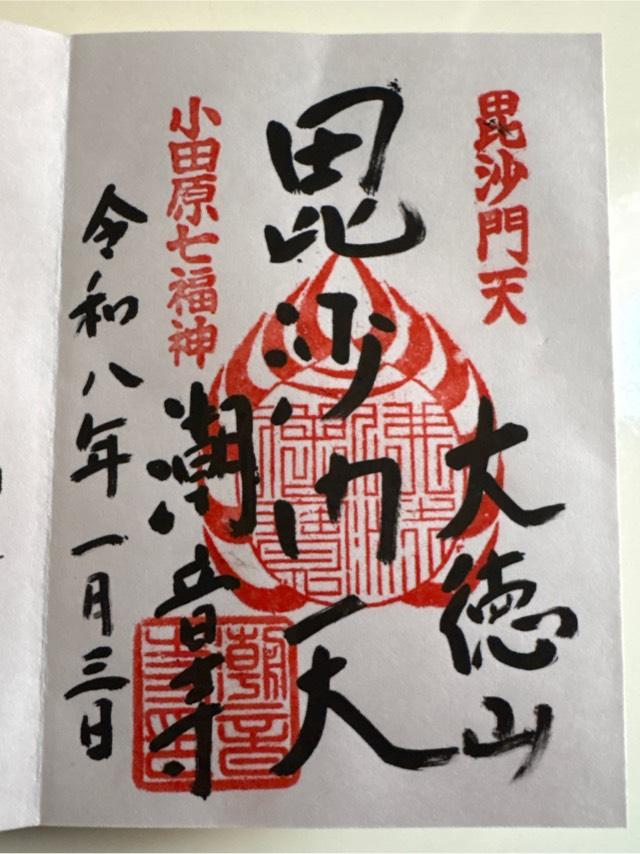 毘沙門天
大徳山
毘沙門天
小田原七福神
潮音寺
令和八年一月三日